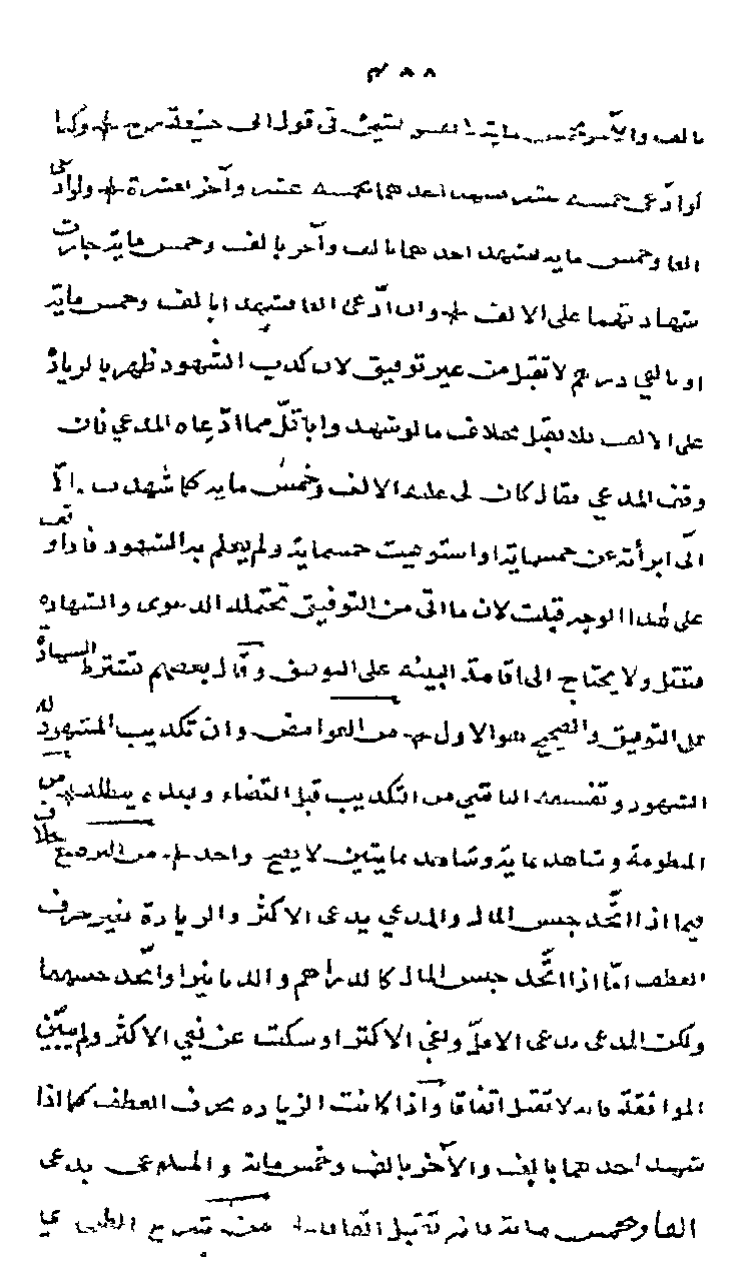 ٣٨٨
بالف والآخر بخمس ماية لا تقبل في قول ابى حنيفة وكذا
لو ادّعى خمسة عشر فشهد احدهما بخمسة عشر وآخر بعشرة ولو ادّعى
الفا وخمس ماية فشهد احدهما بالف وآخر بالف وخمس ماية جازت
شهادتهما على الالف وان ادّعى الفا فشهدا بالف وخمس ماية
او بالفي درهم لا تقبل من غير توفيق لان كذب الشهود ظهر بالزيادة
على الالف فلا تقبل بخلاف ما لو شهدوا باقلّ مما ادّعاه المدعي فان
وفق المدعي فقال كان لى عليه الالف وخمس ماية كما شهدت الّا
انّى ابرأته عن خمسماية او استوفيت خمسماية ولم يعلم به الشهود فاذا وفق
على هذا الوجه قبلت لان ما اتى من التوفيق تحتمله الدعوى والشهادة
فتقبل ولا يحتاج الى اقامة البينة على التوفيق وقال بعضهم تشترط الشهادة
على التوفيق والصحيح هو الاول من العوامض وان تكذيب المشهود له
الشهود وتفسيقه الباقي من التكذيب قبل القضاء وبعده يبطله من
المنظومة وشاهد بماية وشاهد بمايتين لا يصح واحد من الموضع خلاف
فيما اذا اتّحد جنس المال والمدعي يدعى الاكثر والزيادة بغير حرف
العطف امّا اذا اتّحد جنس المال كالدراهم والدنانير او اتّحد جنسهما
ولكن المدعى يدعى الاقلّ ونفي الاكثر او سكت عن نفي الاكثر ولم يبيّن
الموافقة فانه لا تقبل اتفاقا واذا كانت الزياده بحرف العطف كما اذا
شهد احدهما بالف والآخر بالف وخمس ماية والمدعى يدعى
الفا وخمس ماية فانه تقبل اتفاقا من